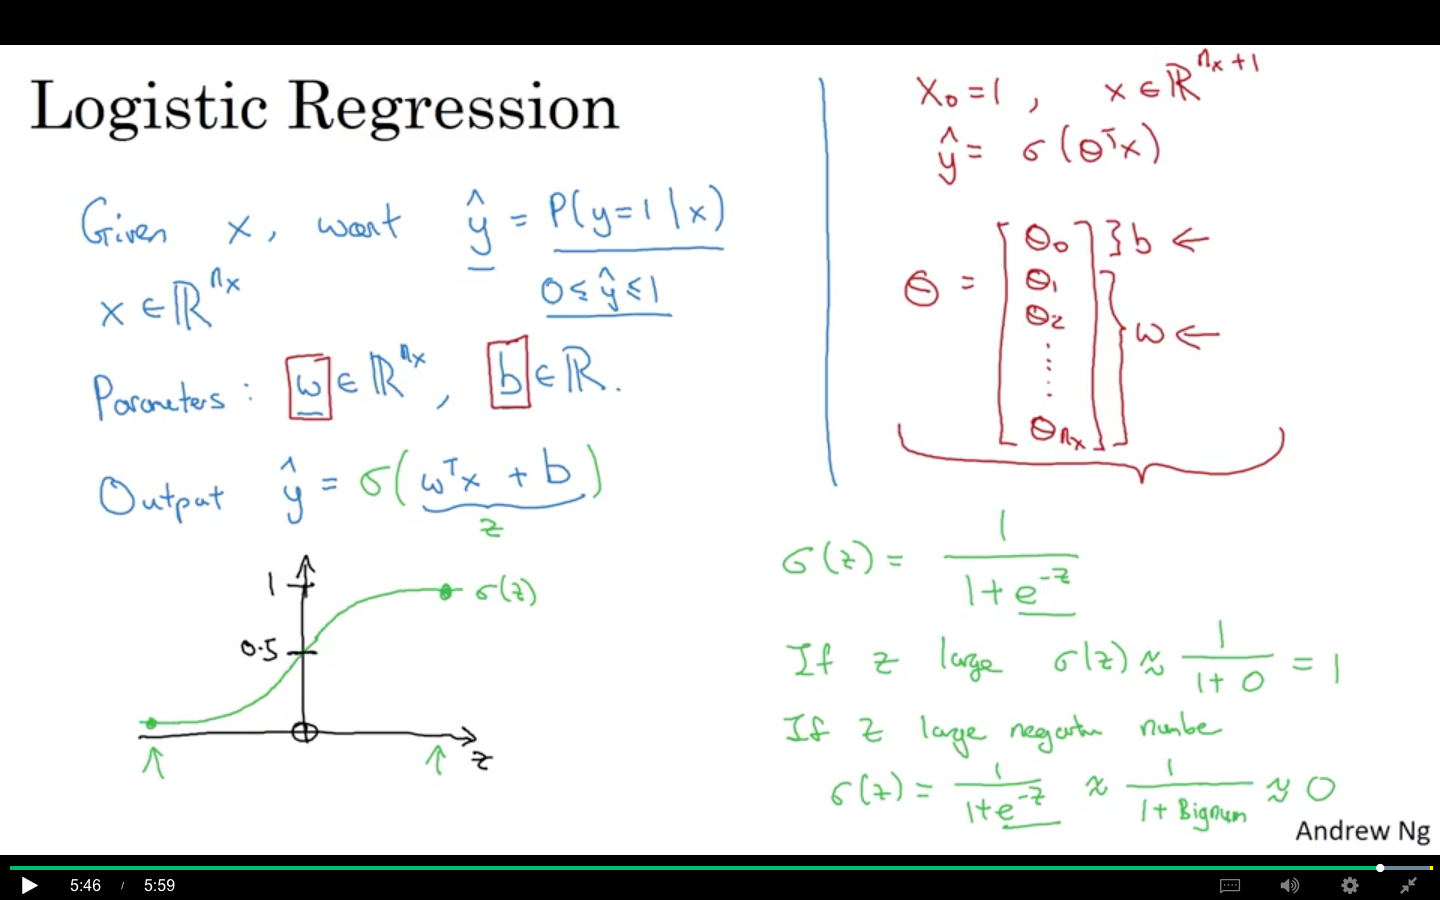 Logistic Regression
Given x, want ŷ = P(y=1|x)
x ∈ ℝ^nx 0 ≤ ŷ ≤ 1
Parameters: w ∈ ℝ^nx, b ∈ ℝ.
Output ŷ = σ(wᵀx + b)
z
1
σ(z)
0.5
z
x₀=1, x ∈ ℝ^nx+1
ŷ = σ(θᵀx)
θ = [θ₀ } b ←
θ₁
θ₂ } w ←
⋮
θnx]
σ(z) = 1 / (1+e^-z)
If z large σ(z) ≈ 1 / (1+0) = 1
If z large negative number
σ(z) = 1 / (1+e^-z) ≈ 1 / (1+Bignum) ≈ 0
Andrew Ng
5:46 / 5:59